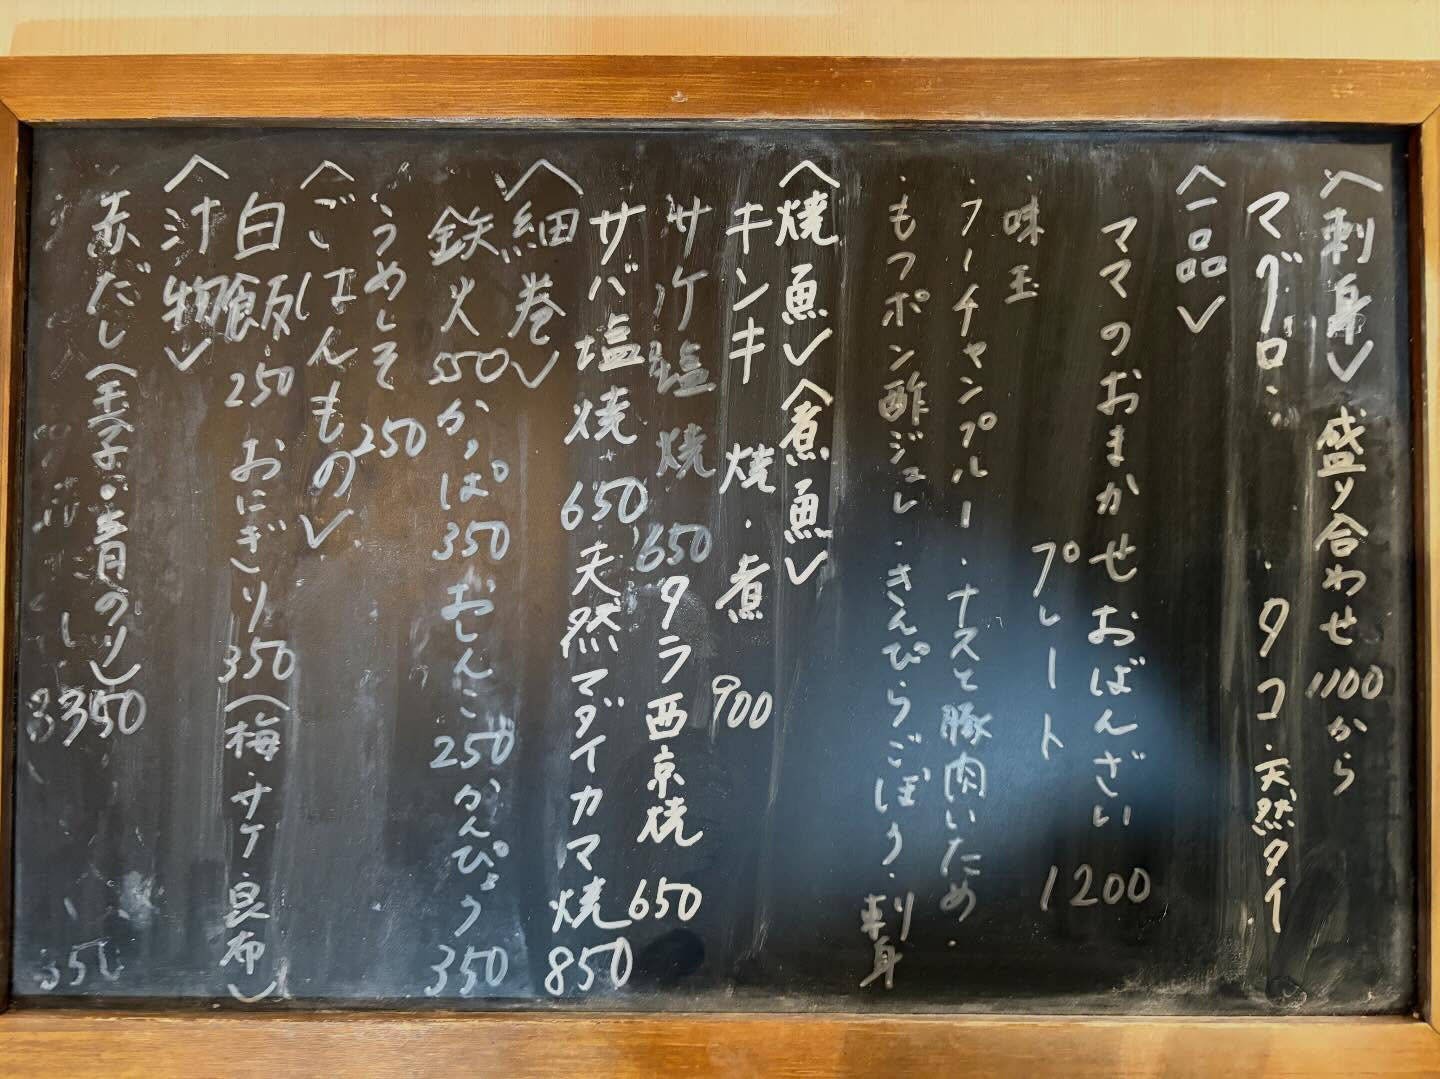 〈刺身〉 盛り合わせ 1100から
マグロ・ ・タコ・天然タイ
〈一品〉
ママのおまかせおばんざい
プレート 1200
・味玉
・フーチャンプルー・ナスと豚肉いため・
・もつポン酢ジュレ・きんぴらごぼう・刺身
〈焼魚〉〈煮魚〉
キンキ 焼・煮 900
サケ塩焼 650 タラ西京焼 650
サバ塩焼 650 天然マダイカマ焼 850
〈細巻〉
鉄火 550 かっぱ 350 おしんこ 250 かんぴょう 350
うめしそ 250
〈ごはんもの〉
白飯 250 おにぎり 350 (梅・サケ・昆布)
〈汁物〉
赤だし(玉子・青のり) 350